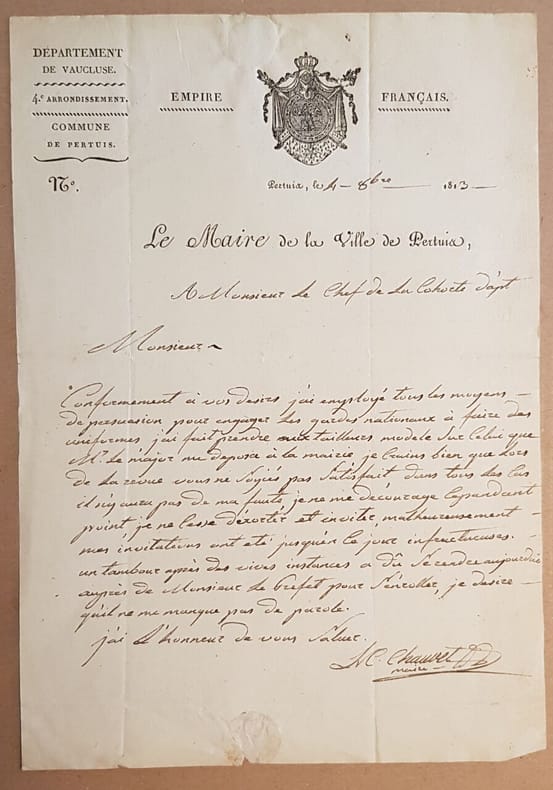 DÉPARTEMENT
DE VAUCLUSE.
4.e ARRONDISSEMENT.
COMMUNE
DE PERTUIS.
EMPIRE FRANÇAIS.
N.o
Pertuis, le 4 8bre 1813
Le Maire de la Ville de Pertuis,
A Monsieur Le Chef de La Cohorte d'apt
Monsieur
Conformement à vos desirs j'ai employé tous les moyens
de persuasion pour engager Les gardes nationaux à faire des
uniformes, j'ai fait prendre aux tailleurs modele Sur Celui que
Mr. Le major me deposa à la mairie, je Crains bien que Lors
de La revue vous ne Soyiés pas Satisfait dans tous Les Cas
il n'y aura pas de ma faute, je ne me decourage Cependant
point, je ne Cesse d'exorter et inviter, malheureusement
mes invitations ont eté jusques à Ce jour infructueuses.
un tambour après des vives instances a dû Se rendre aujourd'hui
auprès de Monsieur Le Prefet pour S'enroller, je desire
qu'il ne me manque pas de parole.
j'ai L'honneur de vous Saluer.
Chauvet
maire